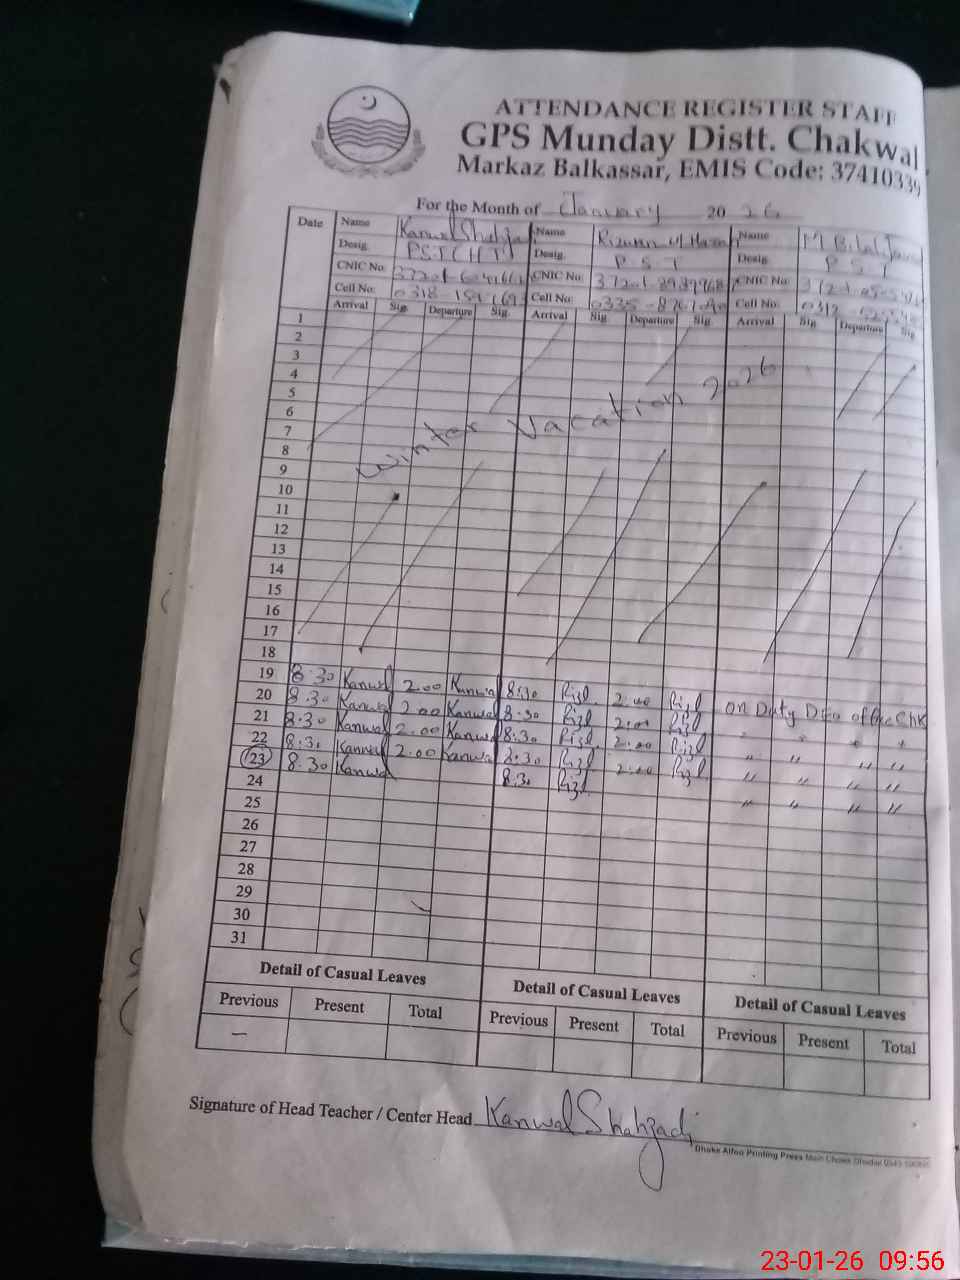 ATTENDANCE REGISTER STAFF
GPS Munday Distt. Chakwal
Markaz Balkassar, EMIS Code: 37410339
For the Month of January 2026
Date Name Kanwal Shahza Name Rizwan ul Hasan Name M Bilal
Desig. PST (HT) Desig. P.S.T Desig. P S T
CNIC No: CNIC No: CNIC No:
Cell No: Cell No: Cell No:
Arrival Sig. Departure Sig. Arrival Sig. Departure Sig. Arrival Sig. Departure Sig.
1
2
3
4
5
6
7
Winter Vacation 2026
8
9
10
11
12
13
14
15
16
17
18
19 8:30 Kanwal 2.00 Kanwal 8:30 2.00 on Duty Deo office Chk
20 8.30 Kanwal 2.00 Kanwal 8.30 2.00 " " " "
21 8:30 Kanwal 2.00 Kanwal 8.30 2.00 " " " "
22 8:30 Kanwal 2.00 Kanwal 8.30 2.00 " " " "
23 8:30 Kanwal 8:30 " " " "
24
25
26
27
28
29
30
31
Detail of Casual Leaves Detail of Casual Leaves Detail of Casual Leaves
Previous Present Total Previous Present Total Previous Present Total
–
Signature of Head Teacher / Center Head Kanwal Shahzadi
Printing Press Main Chowk
23-01-26 09:56